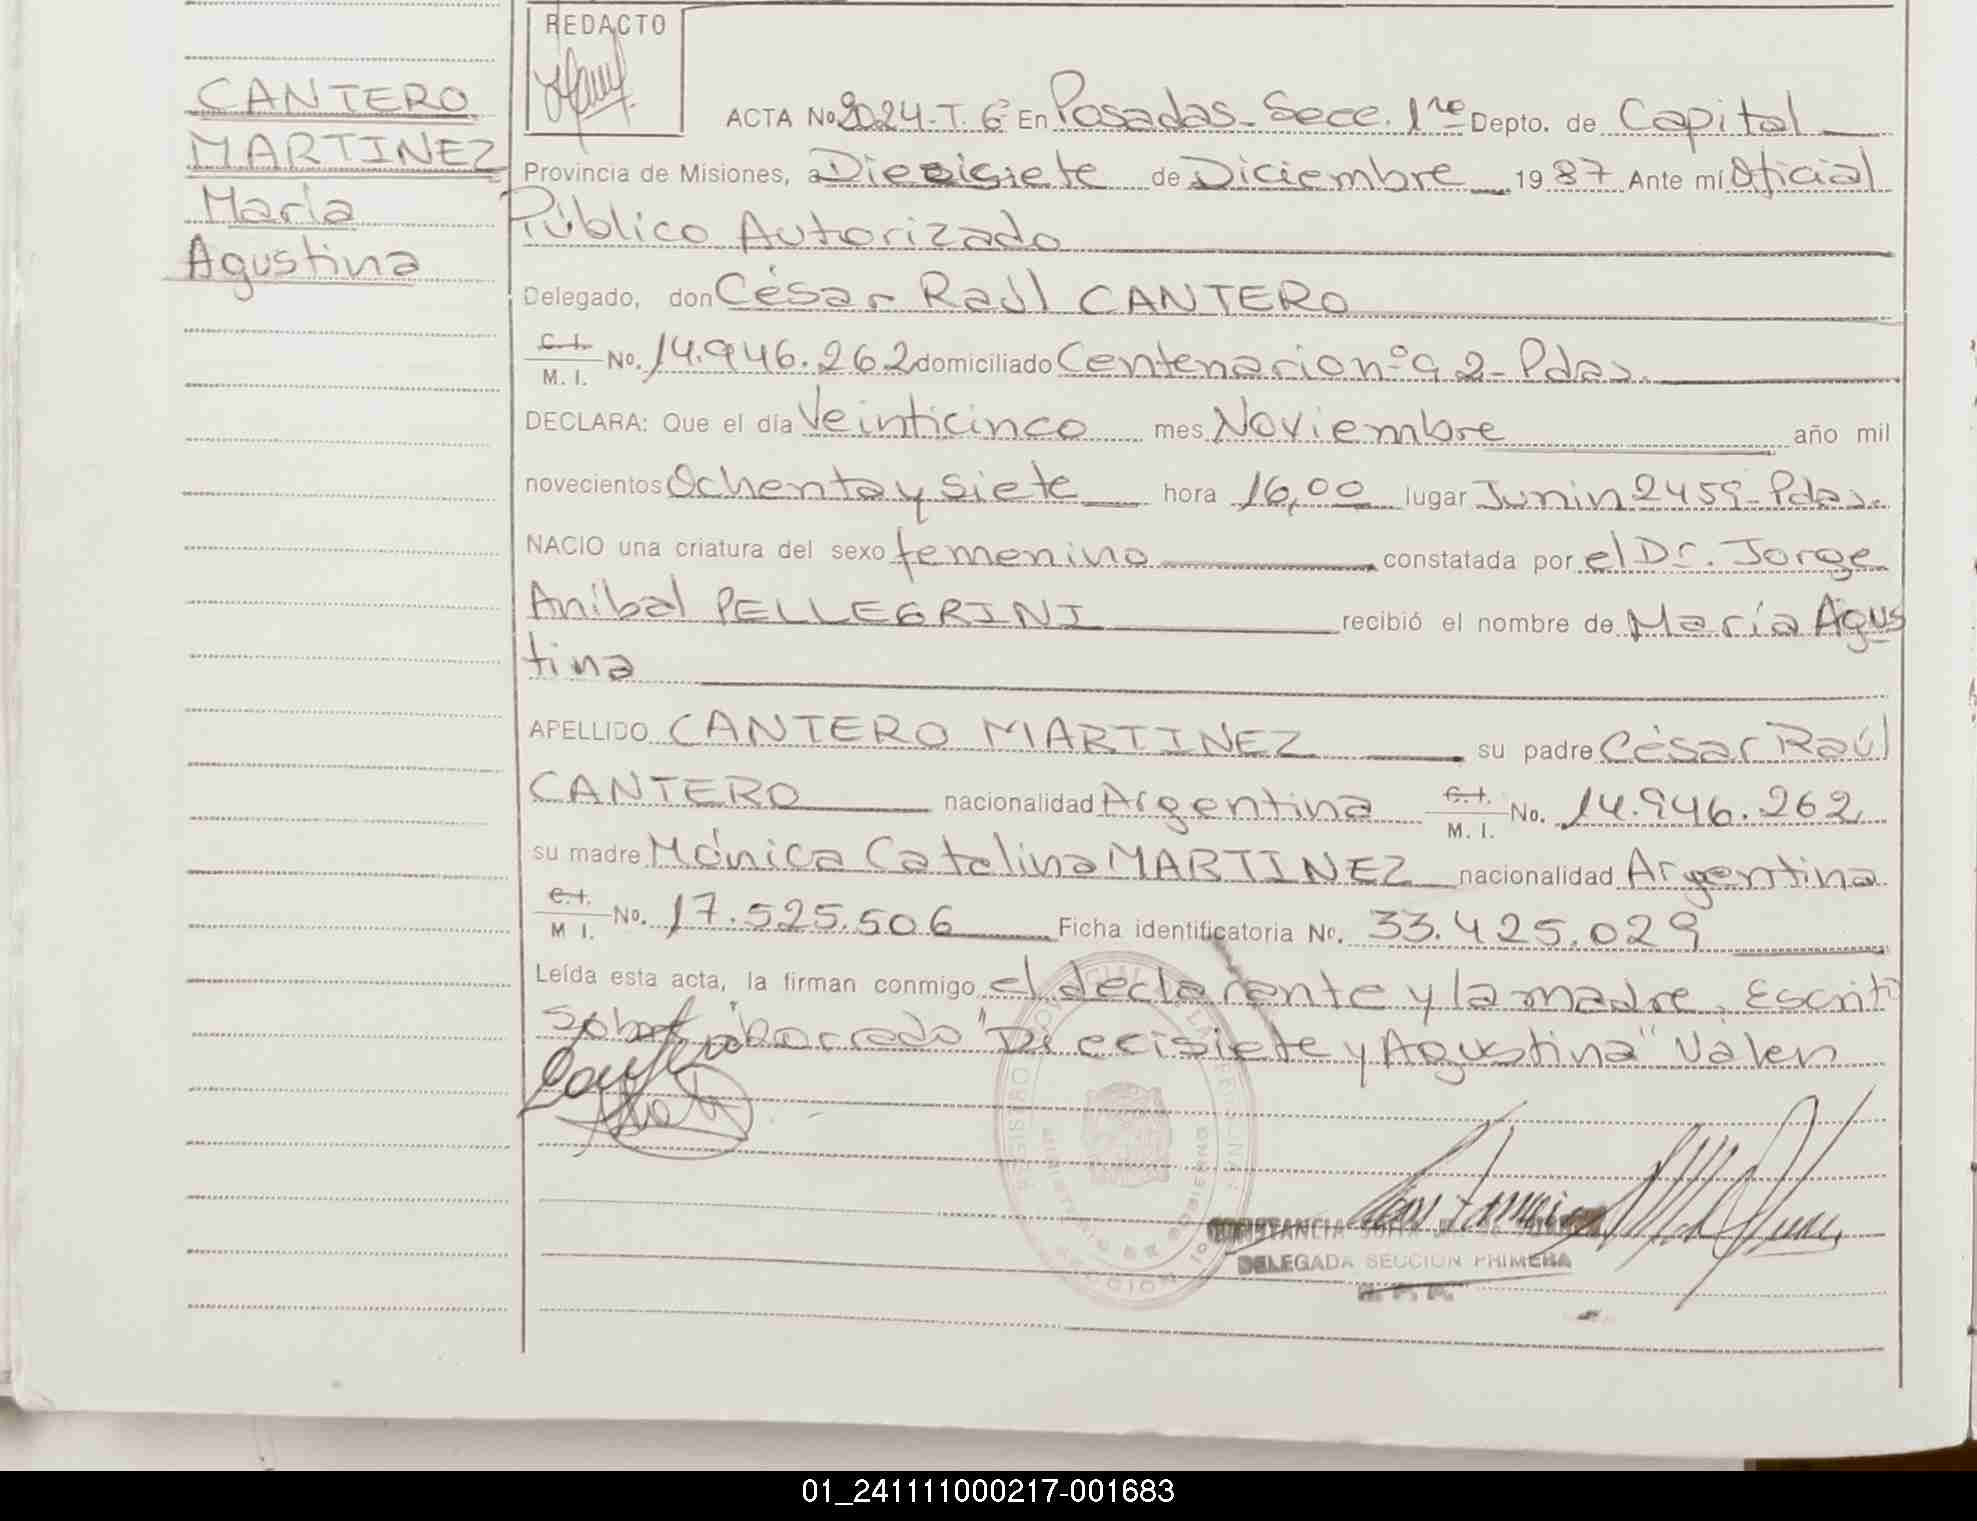 REDACTO
CANTERO
MARTINEZ
María
Agustina
ACTA No 2024-T. 6 En Posadas- Secc. 1ra Depto. de Capital
Provincia de Misiones, a Diecisiete de Diciembre 1987 Ante mí Oficial
Público Autorizado
Delegado, don César Raúl CANTERO
C. I. / M. I. No. 14.946.262 domiciliado Centenario nº 92- Pdas.
DECLARA: Que el día Veinticinco mes Noviembre año mil
novecientos Ochenta y siete hora 16,00 lugar Junin 2459- Pdas.
NACIO una criatura del sexo femenino constatada por el Dr. Jorge
Aníbal PELLEGRINI recibió el nombre de María Agus
tina
APELLIDO CANTERO MARTINEZ su padre César Raúl
CANTERO nacionalidad Argentina C. I. / M. I. No. 14.946.262
su madre Mónica Catalina MARTINEZ nacionalidad Argentina
C. I. / M I. No. 17.525.506 Ficha identificatoria No. 33.425.029
Leída esta acta, la firman conmigo el declarante y la madre. Escrito
sobre "borrado" Diecisiete y Agustina" Valen
REGISTRO PROVINCIAL DE LAS PERSONAS
MINISTERIO DE GOBIERNO
SECCION 1
CONSTANCIA
DELEGADA SECCION PRIMERA
R. P. P.
01_241111000217-001683